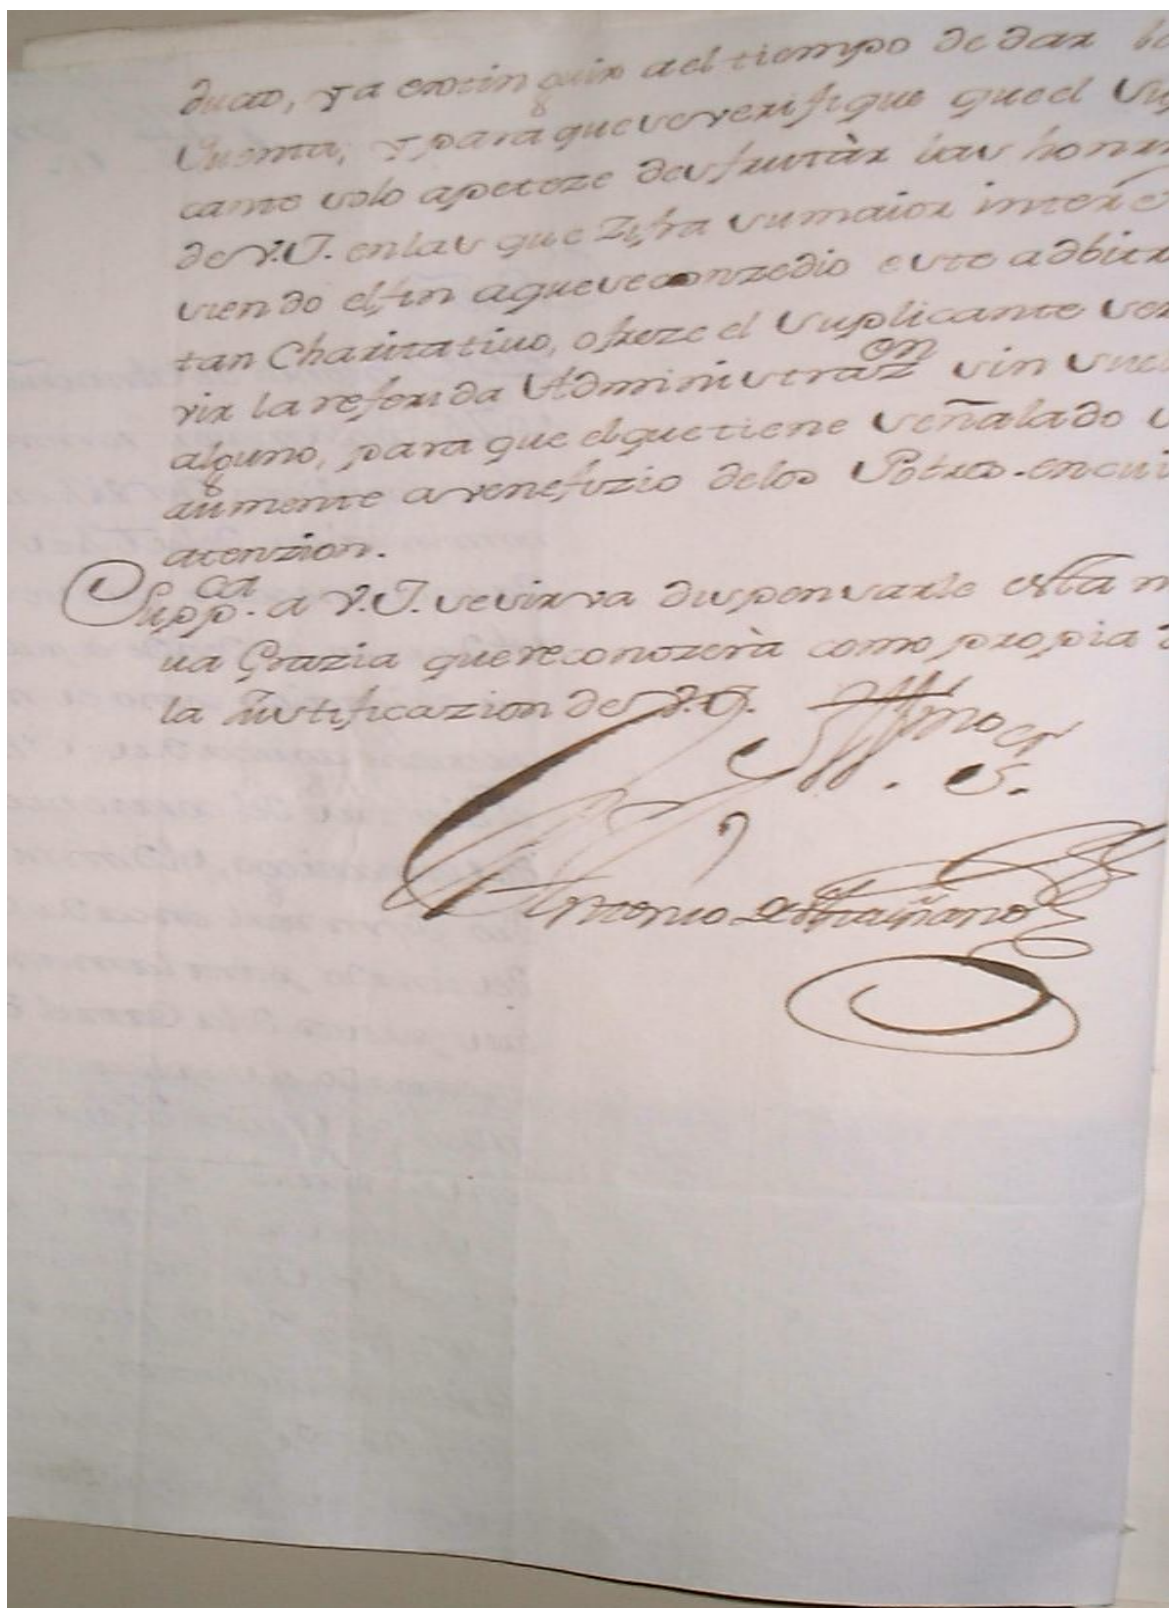 ducto, y a extinguir a el tiempo de dar la
Cuenta; y para que se verifique que el Sup
cante solo apeteze desfrutàr las honrr
de V.I. en las que Zifra su maior interès
siendo el fin a que se conzedio este adbitr
tan Charitatiuo, ofreze el Suplicante ser
vir la referida Administraz.on sin suel
alguno, para que el que tiene señalado
aumente a venefizio de los Pobres en cui
atenzion.
Supp.ca a V.I. se sirva dispensarle esta m
ua Grazia que reconozerà como propia d
la iustificazion de V.I.
Illmo S.or
Antonio de